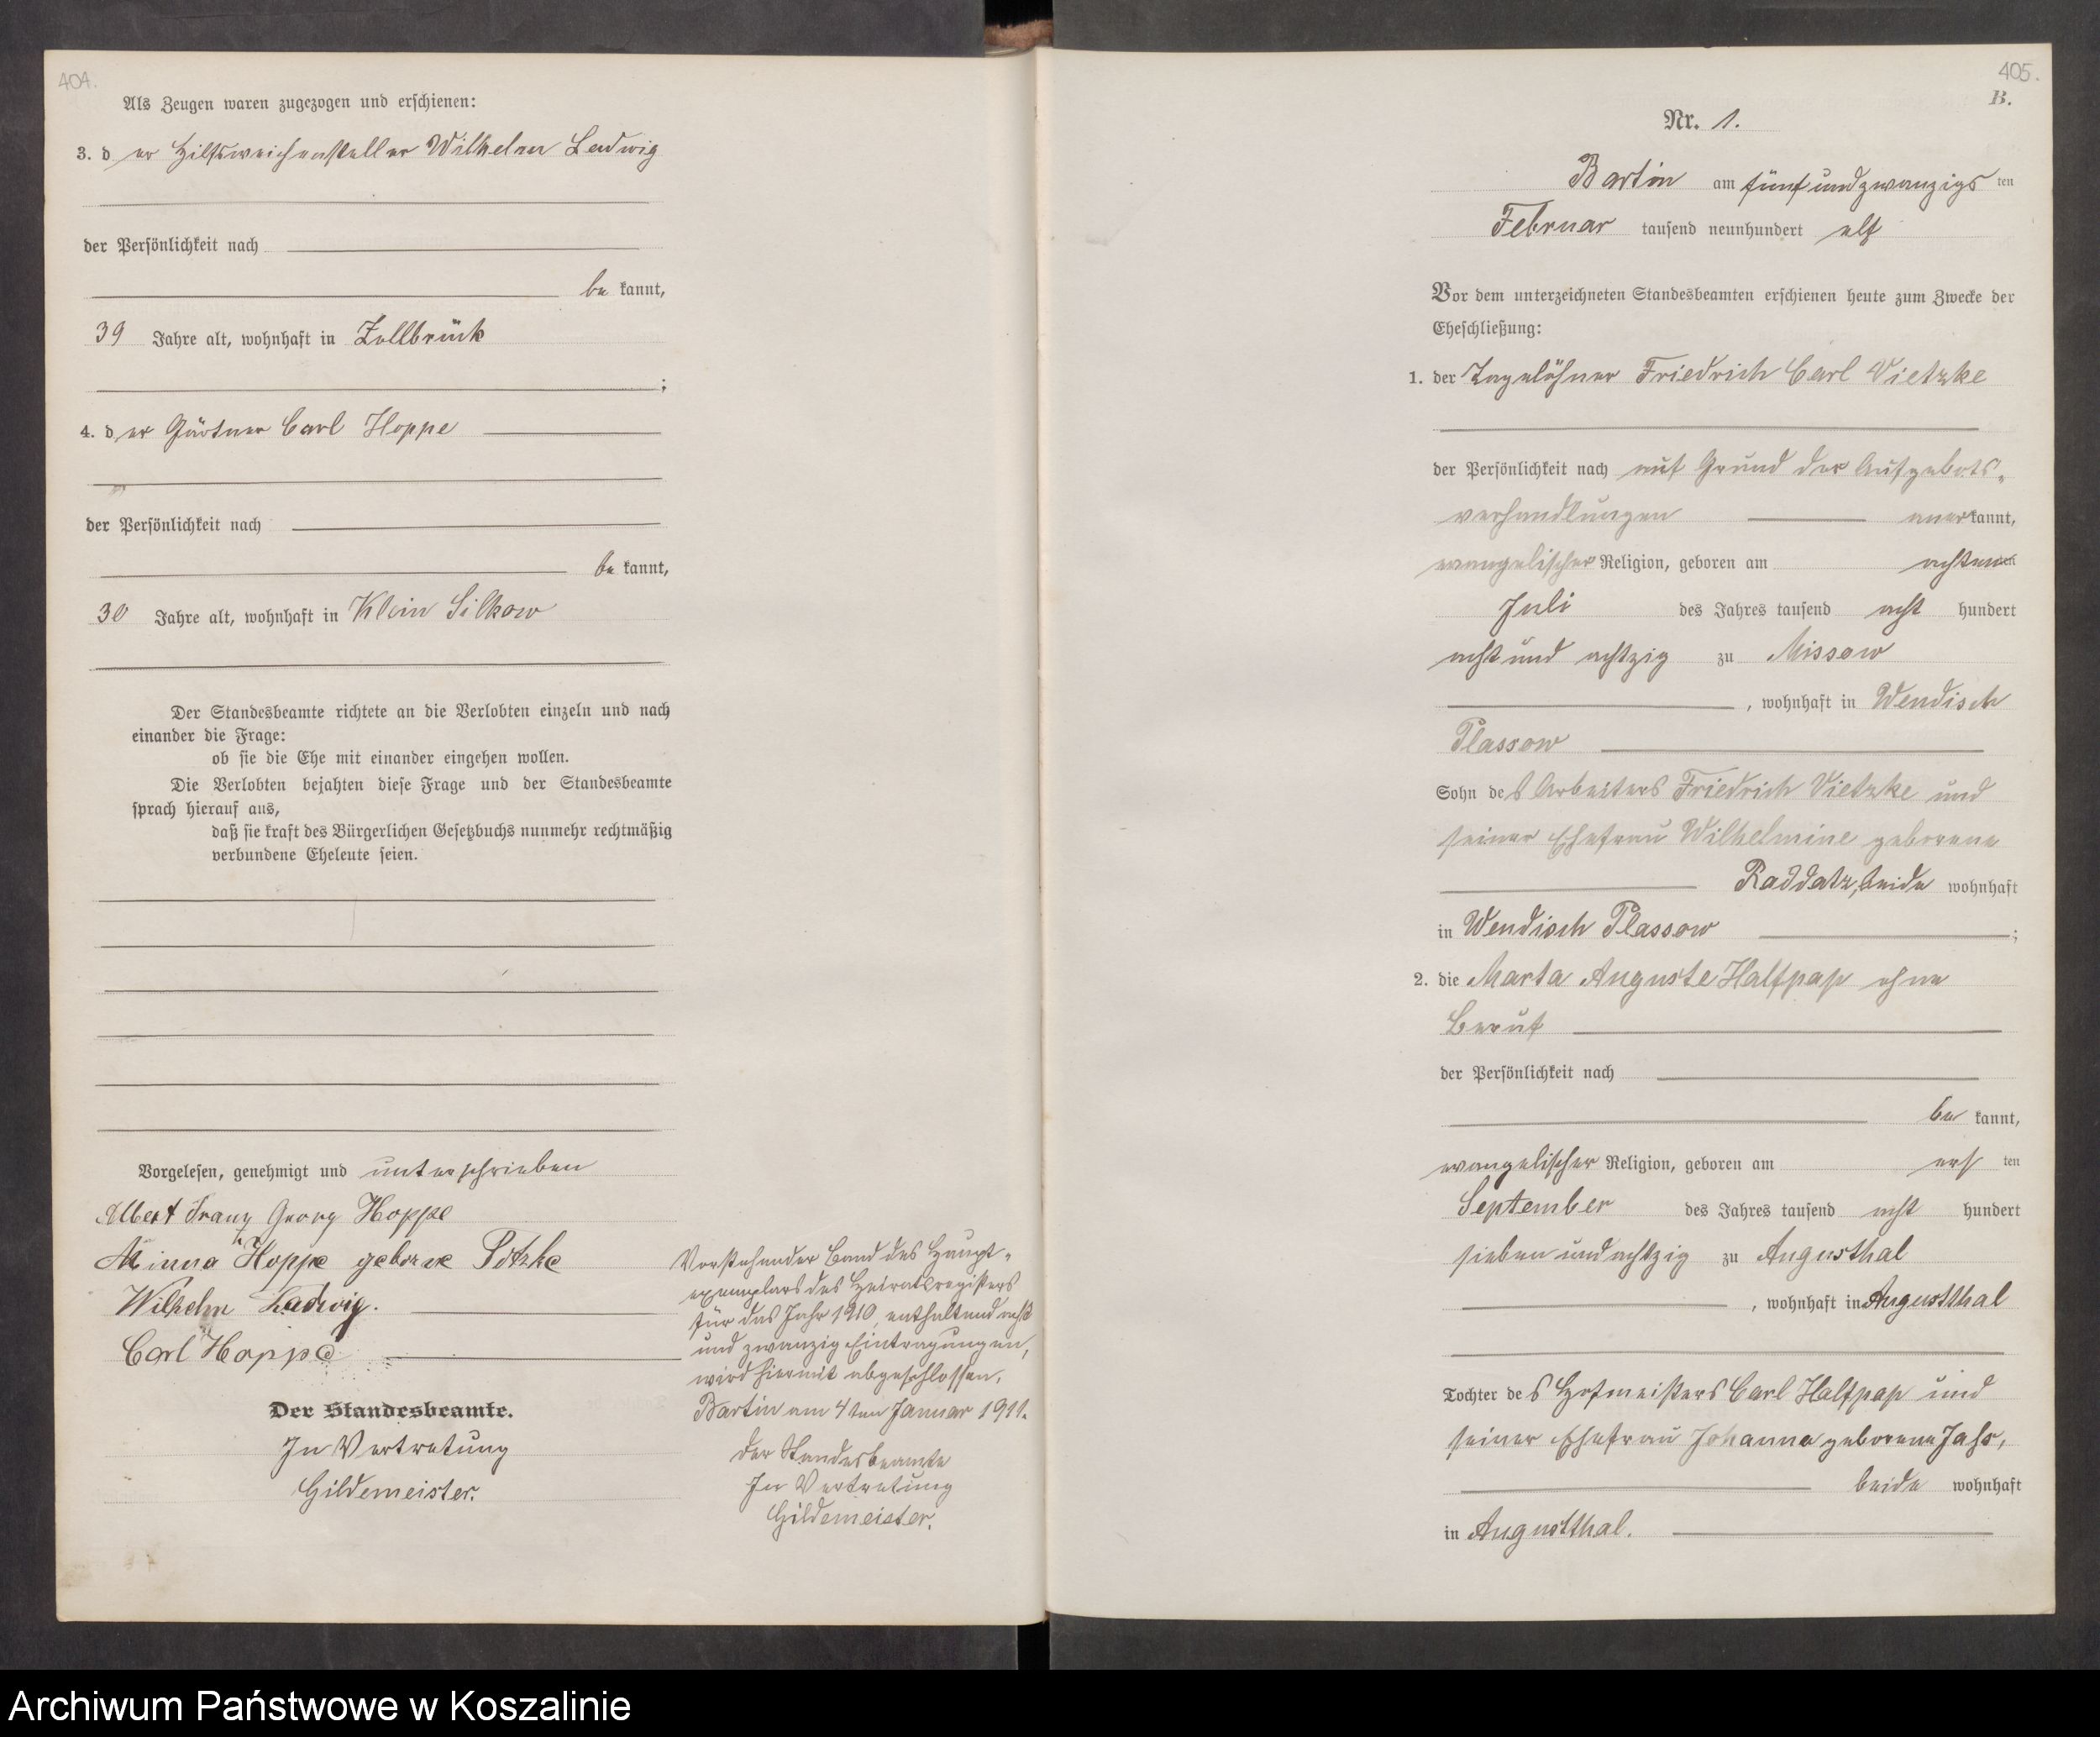 404.
Als Zeugen waren zugezogen und erschienen:
3. der Hilfsweichensteller Wilhelm Ledwig
der Persönlichkeit nach
be kannt,
39 Jahre alt, wohnhaft in Zollbrück
;
4. der Gärtner Carl Hoppe
der Persönlichkeit nach
be kannt,
30 Jahre alt, wohnhaft in Klein Silkow
Der Standesbeamte richtete an die Verlobten einzeln und nach
einander die Frage:
ob sie die Ehe mit einander eingehen wollen.
Die Verlobten bejahten diese Frage und der Standesbeamte
sprach hierauf aus,
daß sie kraft des Bürgerlichen Gesetzbuchs nunmehr rechtmäßig
verbundene Eheleute seien.
Vorgelesen, genehmigt und unterschrieben
Albert Franz Georg Hoppe
Minna Hoppe geborene Potzke
Wilhelm Ladwig.
Carl Hoppe
Der Standesbeamte.
In Vertretung
Gildemeister.
Vorstehender Band des Haupt-
exemplars des Heiratsregisters
für das Jahr 1910, enthaltend acht
und zwanzig Eintragungen,
wird hiermit abgeschlossen.
Bartin am 4ten Januar 1911.
Der Standesbeamte
In Vertretung
Gildemeister.
405.
B.
Nr. 1.
Bartin am fünfundzwanzigs ten
Februar tausend neunhundert elf
Vor dem unterzeichneten Standesbeamten erschienen heute zum Zwecke der
Eheschließung:
1. der Tagelöhner Friedrich Carl Vietzke
der Persönlichkeit nach auf Grund der Aufgebots-
verhandlungen anerkannt,
evangelischer Religion, geboren am achten
Juli des Jahres tausend acht hundert
acht und achtzig zu Missow
, wohnhaft in Wendisch
Plassow
Sohn des Arbeiters Friedrich Vietzke und
seiner Ehefrau Wilhelmine geborene
Raddatz, beide wohnhaft
in Wendisch Plassow ;
2. die Marta Auguste Halfpap ohne
Beruf
der Persönlichkeit nach
be kannt,
evangelischer Religion, geboren am ers ten
September des Jahres tausend acht hundert
sieben und achtzig zu Augusthal
, wohnhaft in Augustthal
Tochter des Hofmeisters Carl Halfpap und
seiner Ehefrau Johanna geborene Jahr,
beide wohnhaft
in Augustthal.
Archiwum Państwowe w Koszalinie